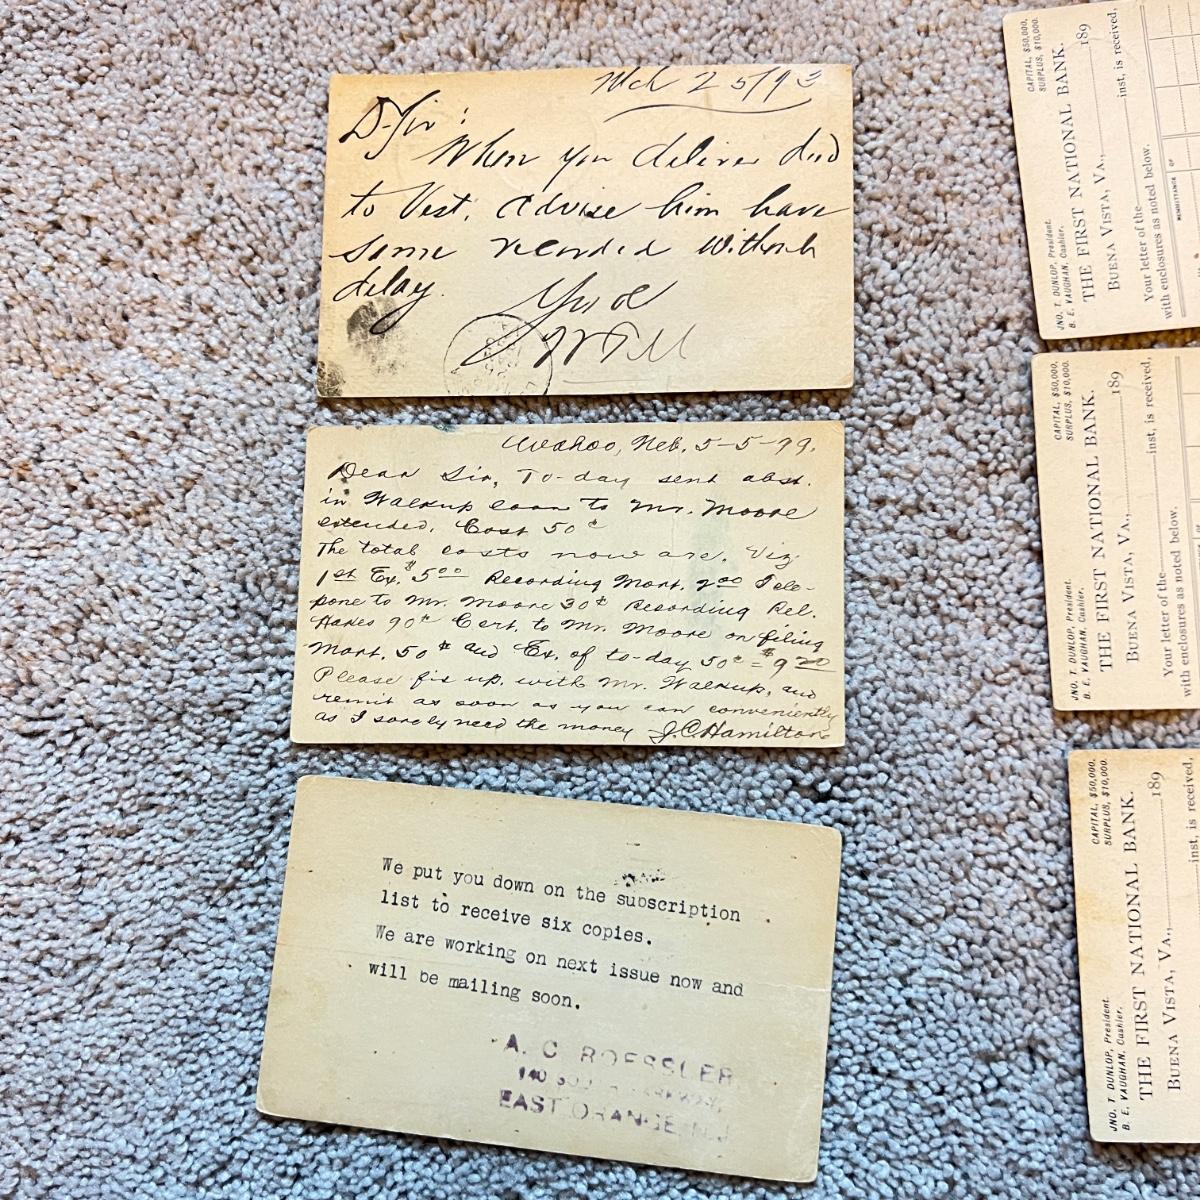 Mch 25/93
D Sir:
When you deliver deed
to Vest, advise him have
same recorded without
delay.
Wahoo, Neb. 5-5-99.
Dear Sir, To-day sent abst.
in Walkup loan to Mr. Moore
extended. Cost 50¢
The total costs now are, Viz
1st Ex. $5.00 Recording Mort. 2.00 Tele-
pone to Mr. Moore 30¢ Recording Rel.
90¢ Cert. to Mr. Moore on filing
Mort. 50¢ and Ex. of to-day 50¢ = $9.20
Please fix up, with Mr. Walkup, and
remit as soon as you can conveniently
as I sorely need the money J.C. Hamilton
We put you down on the subscription
list to receive six copies.
We are working on next issue now and
will be mailing soon.
A. C. ROESSLER
140
EAST ORANGE, N.J.
CAPITAL, $50,000,
SURPLUS, $10,000.
JNO. T. DUNLOP, President.
B. E. VAUGHAN, Cashier.
THE FIRST NATIONAL BANK.
BUENA VISTA, VA., 189
Your letter of the inst, is received,
with enclosures as noted below.
REMITTANCE OF
CAPITAL, $50,000,
SURPLUS, $10,000.
JNO. T. DUNLOP, President.
B. E. VAUGHAN, Cashier.
THE FIRST NATIONAL BANK.
BUENA VISTA, VA., 189
Your letter of the inst, is received,
with enclosures as noted below.
CAPITAL, $50,000,
SURPLUS, $10,000.
JNO. T. DUNLOP, President.
B. E. VAUGHAN, Cashier.
THE FIRST NATIONAL BANK.
BUENA VISTA, VA., 189
inst, is received,